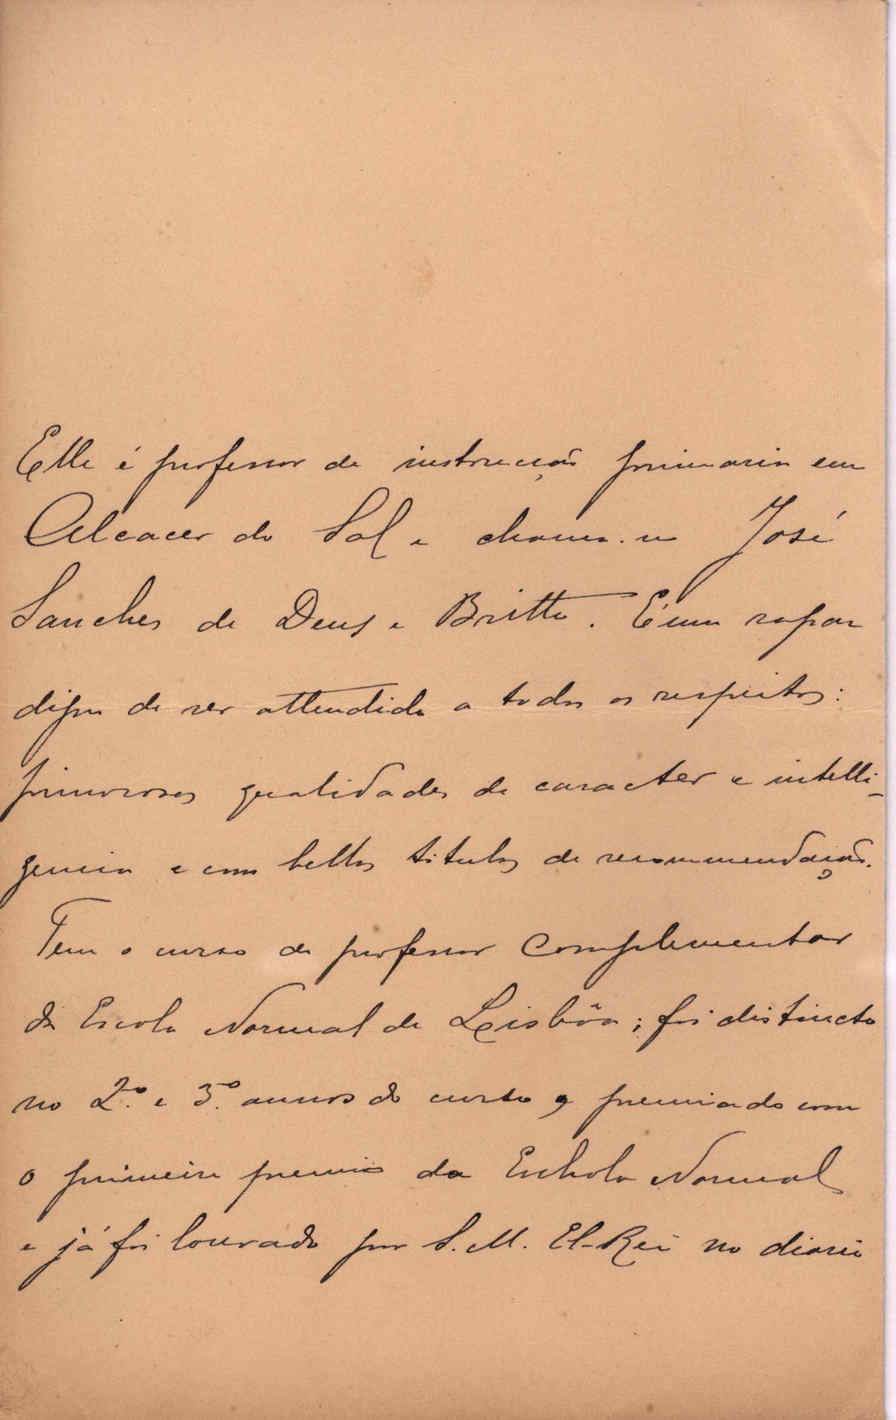 Elle é professor de instrucção primaria em
Alcacer do Sal e chama-se José
Sanches de Deus e Britto. É um rapaz
digno de ser attendido a todos os respeitos:
primorosas qualidades de caracter e intelli-
gencia e com bellos titulos de recommendação.
Tem o curso de professor complementar
da Escola Normal de Lisbôa; foi distincto
no 2.º e 3.º annos do curso e premiado com
o primeiro premio da Eschola Normal
e já foi louvado por S. M. El-Rei no diario